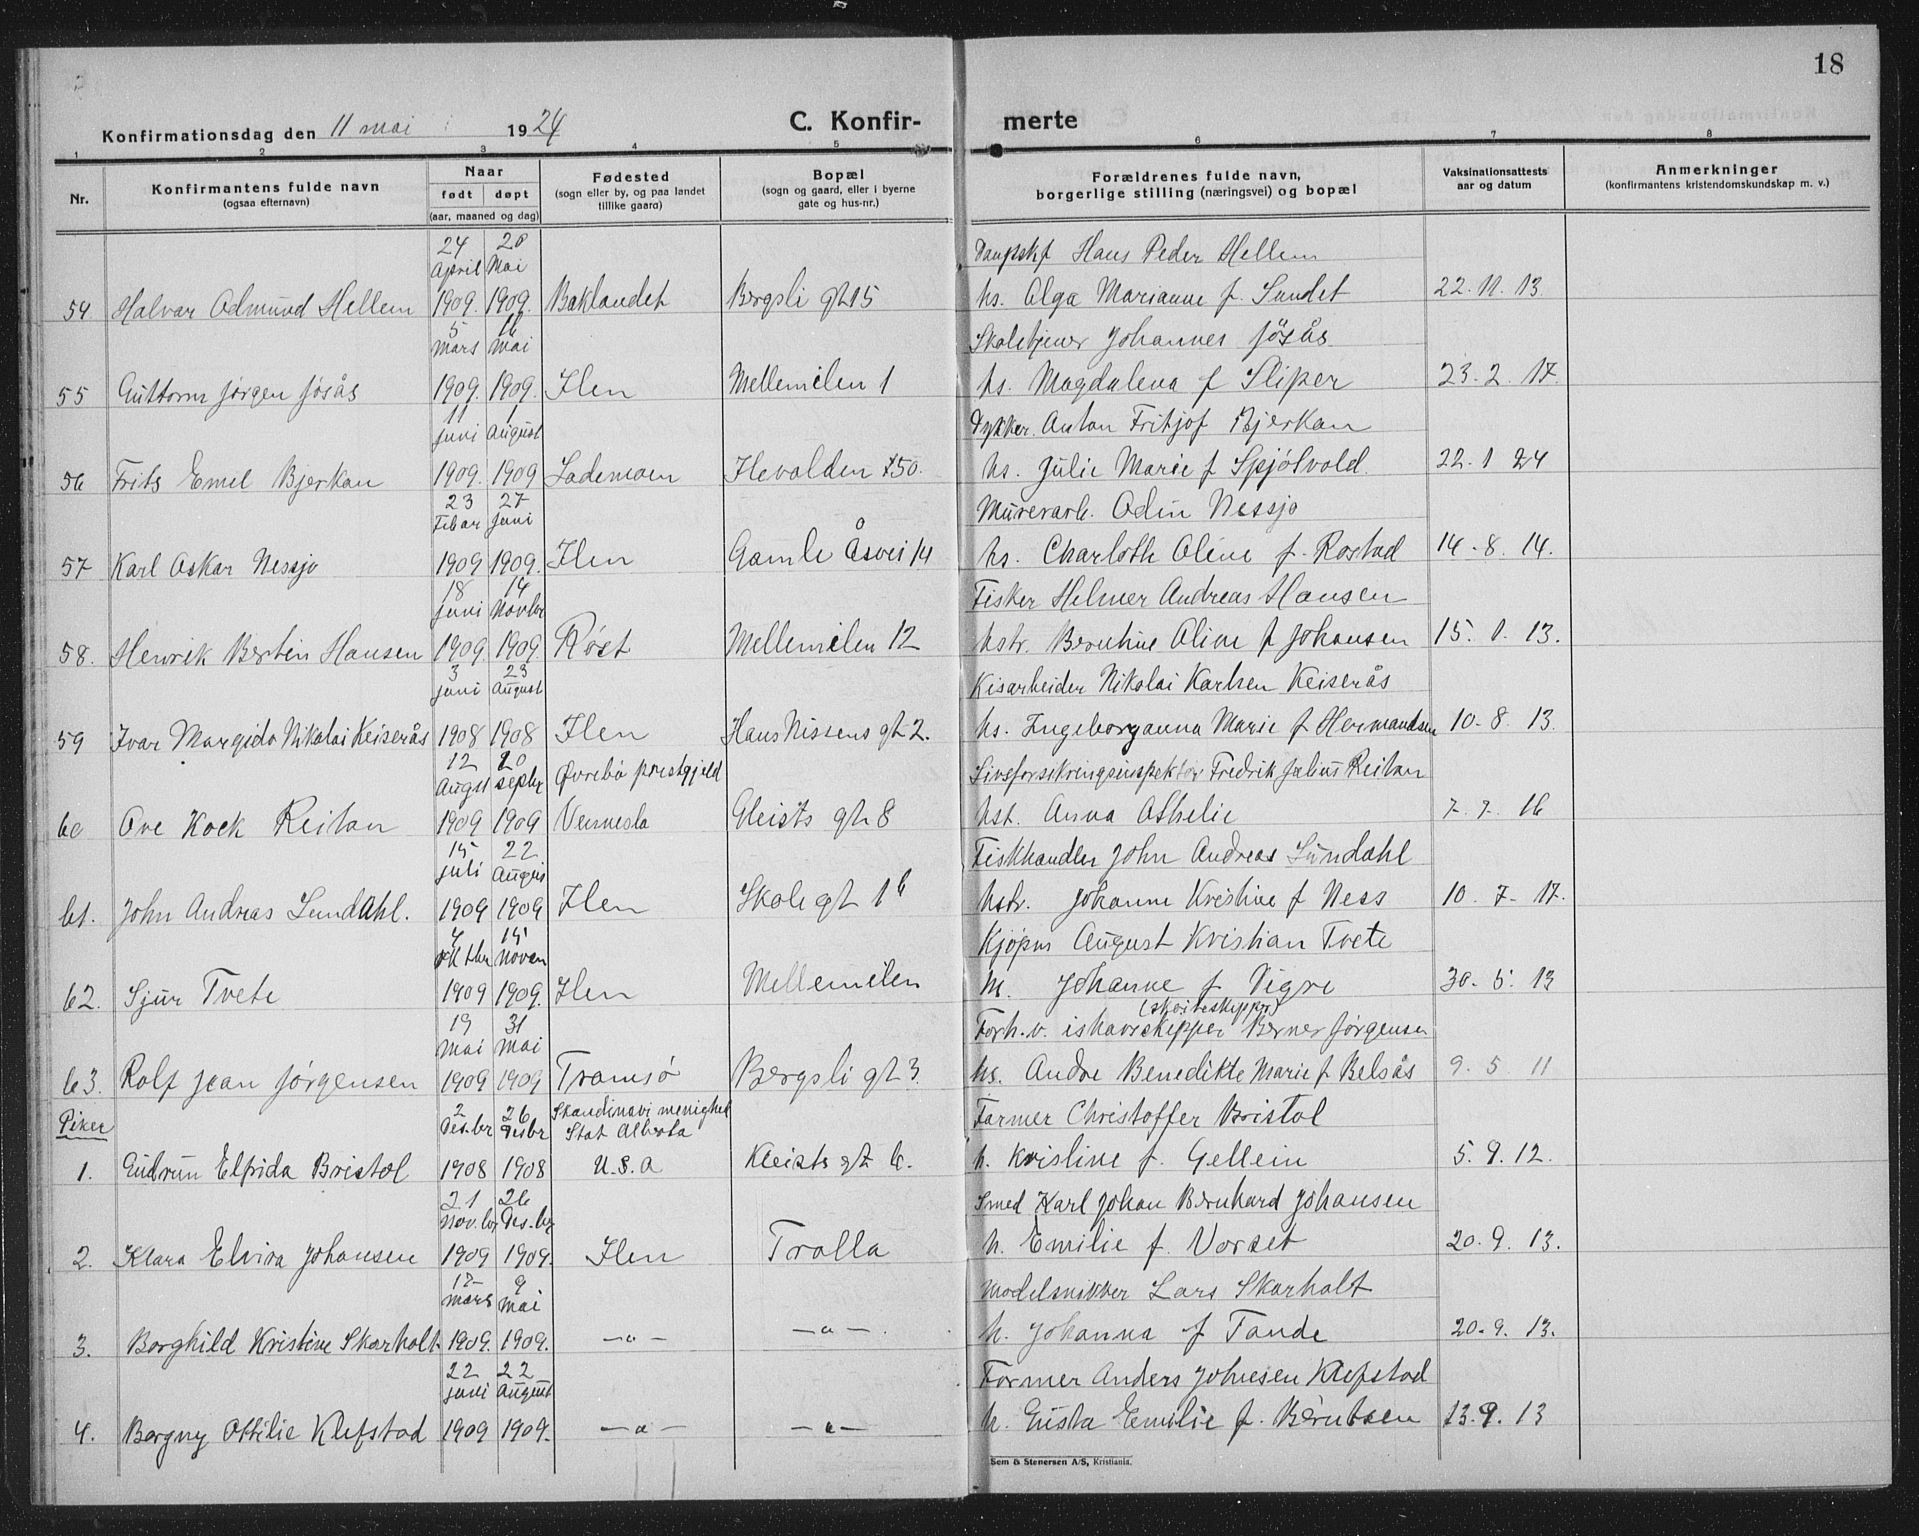 18
Konfirmationsdag den 11 mai 1924
C. Konfirmerte
1 2 3 4 5 6 7 8
Nr.
Konfirmantens fulde navn
(ogsaa efternavn)
Naar
født døpt
(aar, maaned og dag)
Fødested
(sogn eller by, og paa landet
tillike gaard)
Bopæl
(sogn og gaard, eller i byerne
gate og hus-nr.)
Forældrenes fulde navn,
borgerlige stilling (næringsvei) og bopæl
Vaksinationsattests
aar og datum
Anmerkninger
(konfirmantens kristendomskundskap m. v.)
24 April 20 Mai Hans Peder Hellem
54. Halvar Odmund Hellem 1909. 1909. Baklandet Bergsli gt 15 hs. Olga Marianne f. Sundet 22. 11. 13.
5 Mars 16 Mai Skoletjener Johannes Jøsås
55 Guttorm Jørgen Jøsås 1909. 1909. Ilen Mellemilen 1 hs. Magdalena f Sliper 23. 2. 17.
11 Juni 1 August Dykker. Anton Fritjof Bjerkan
56 Frits Emil Bjerkan 1909. 1909 Lademoen Ilevolden 50. hs. Julie Marie f Spjøtvold. 22. 1 24
23 Febar 27 Juni Murerarb. Odin Nessjo
57 Karl Oskar Nessjo 1909 1909. Ilen Gamle Åsvei 14 hs. Charloth Oline f. Rostad 14. 8. 14.
18 Juni 14 Novbr Fisker Helmer Andreas Hansen
58. Henrik Bertin Hansen 1909 1909. Røst Mellemilen 12 hstr. Berntine Oline f Johansen 15. 1. 13.
3 Juni 23 August Kisarbeider Nikolai Karlsen Keiserås
59 Ivar Margido Nikolai Keiserås 1908 1908 Ilen Hans Nissens gt 2. hs. Ingeborganna Marie f Hermandsen 10. 8. 13.
12 Augst 20 septbr Øvrebø prestgjeld Livsforsikringsinspektør Fredrik Julius Reitan
60 Ove Kock Reitan 1909 1909 Vennesla Gleists gt 8 hst. Anna Othelie 7. 7. 16
15 Juli 22 Augus Fiskhandler John Andreas Sundahl
61. John Andreas Sundahl. 1909 1909 Ilen Skole gt 1b hstr. Johanne Kristine f Ness 10. 7. 17.
4 oktbr 15 Noven Kjøpm August Kristian Tvete
62. Sjur Tvete 1909 1909. Ilen Mellemilen h. Johanne f Vigre 30. 5. 13
(skøiteskipper)
19 Mai 31 Mai Forh. v. ishavsskipper Berner Jørgensen
63. Rolf Jean Jørgensen 1909 1909 Tromsø Bergsli gt 3. hs. Andre Benedikte Marie f Belsås 9. 5. 11
Piker 2 Des.br 26 Desbr Skandinavi menighed Stat Alberta Farmer Christoffer Bristol
1. Gudrun Elfrida Bristol 1908 1908 U.S.A Kleists gt 6. h. Kristine f. Gellein 5. 9. 12.
21 Nov.br 26 Des.br Smed Karl Johan Bernhard Johansen
2. Klara Elvira Johansen 1909 1909. Ilen Trolla h. Emilie f. Vorset 20. 9. 13.
12 Mars 9 Mai Modelsnikker Lars Skarholt
3. Borghild Kristine Skarholt 1909. 1909. —"— —"— h. Johanna f Tande 20. 9. 13.
22 Juni 22 August Former Anders Johnesen Klefstad
4. Borgny Ottilie Klefstad 1909 1909. —"— —"— h. Gusta Emilie f. Berntsen 13. 9. 13
Sem & Stenersen A/S, Kristiania.